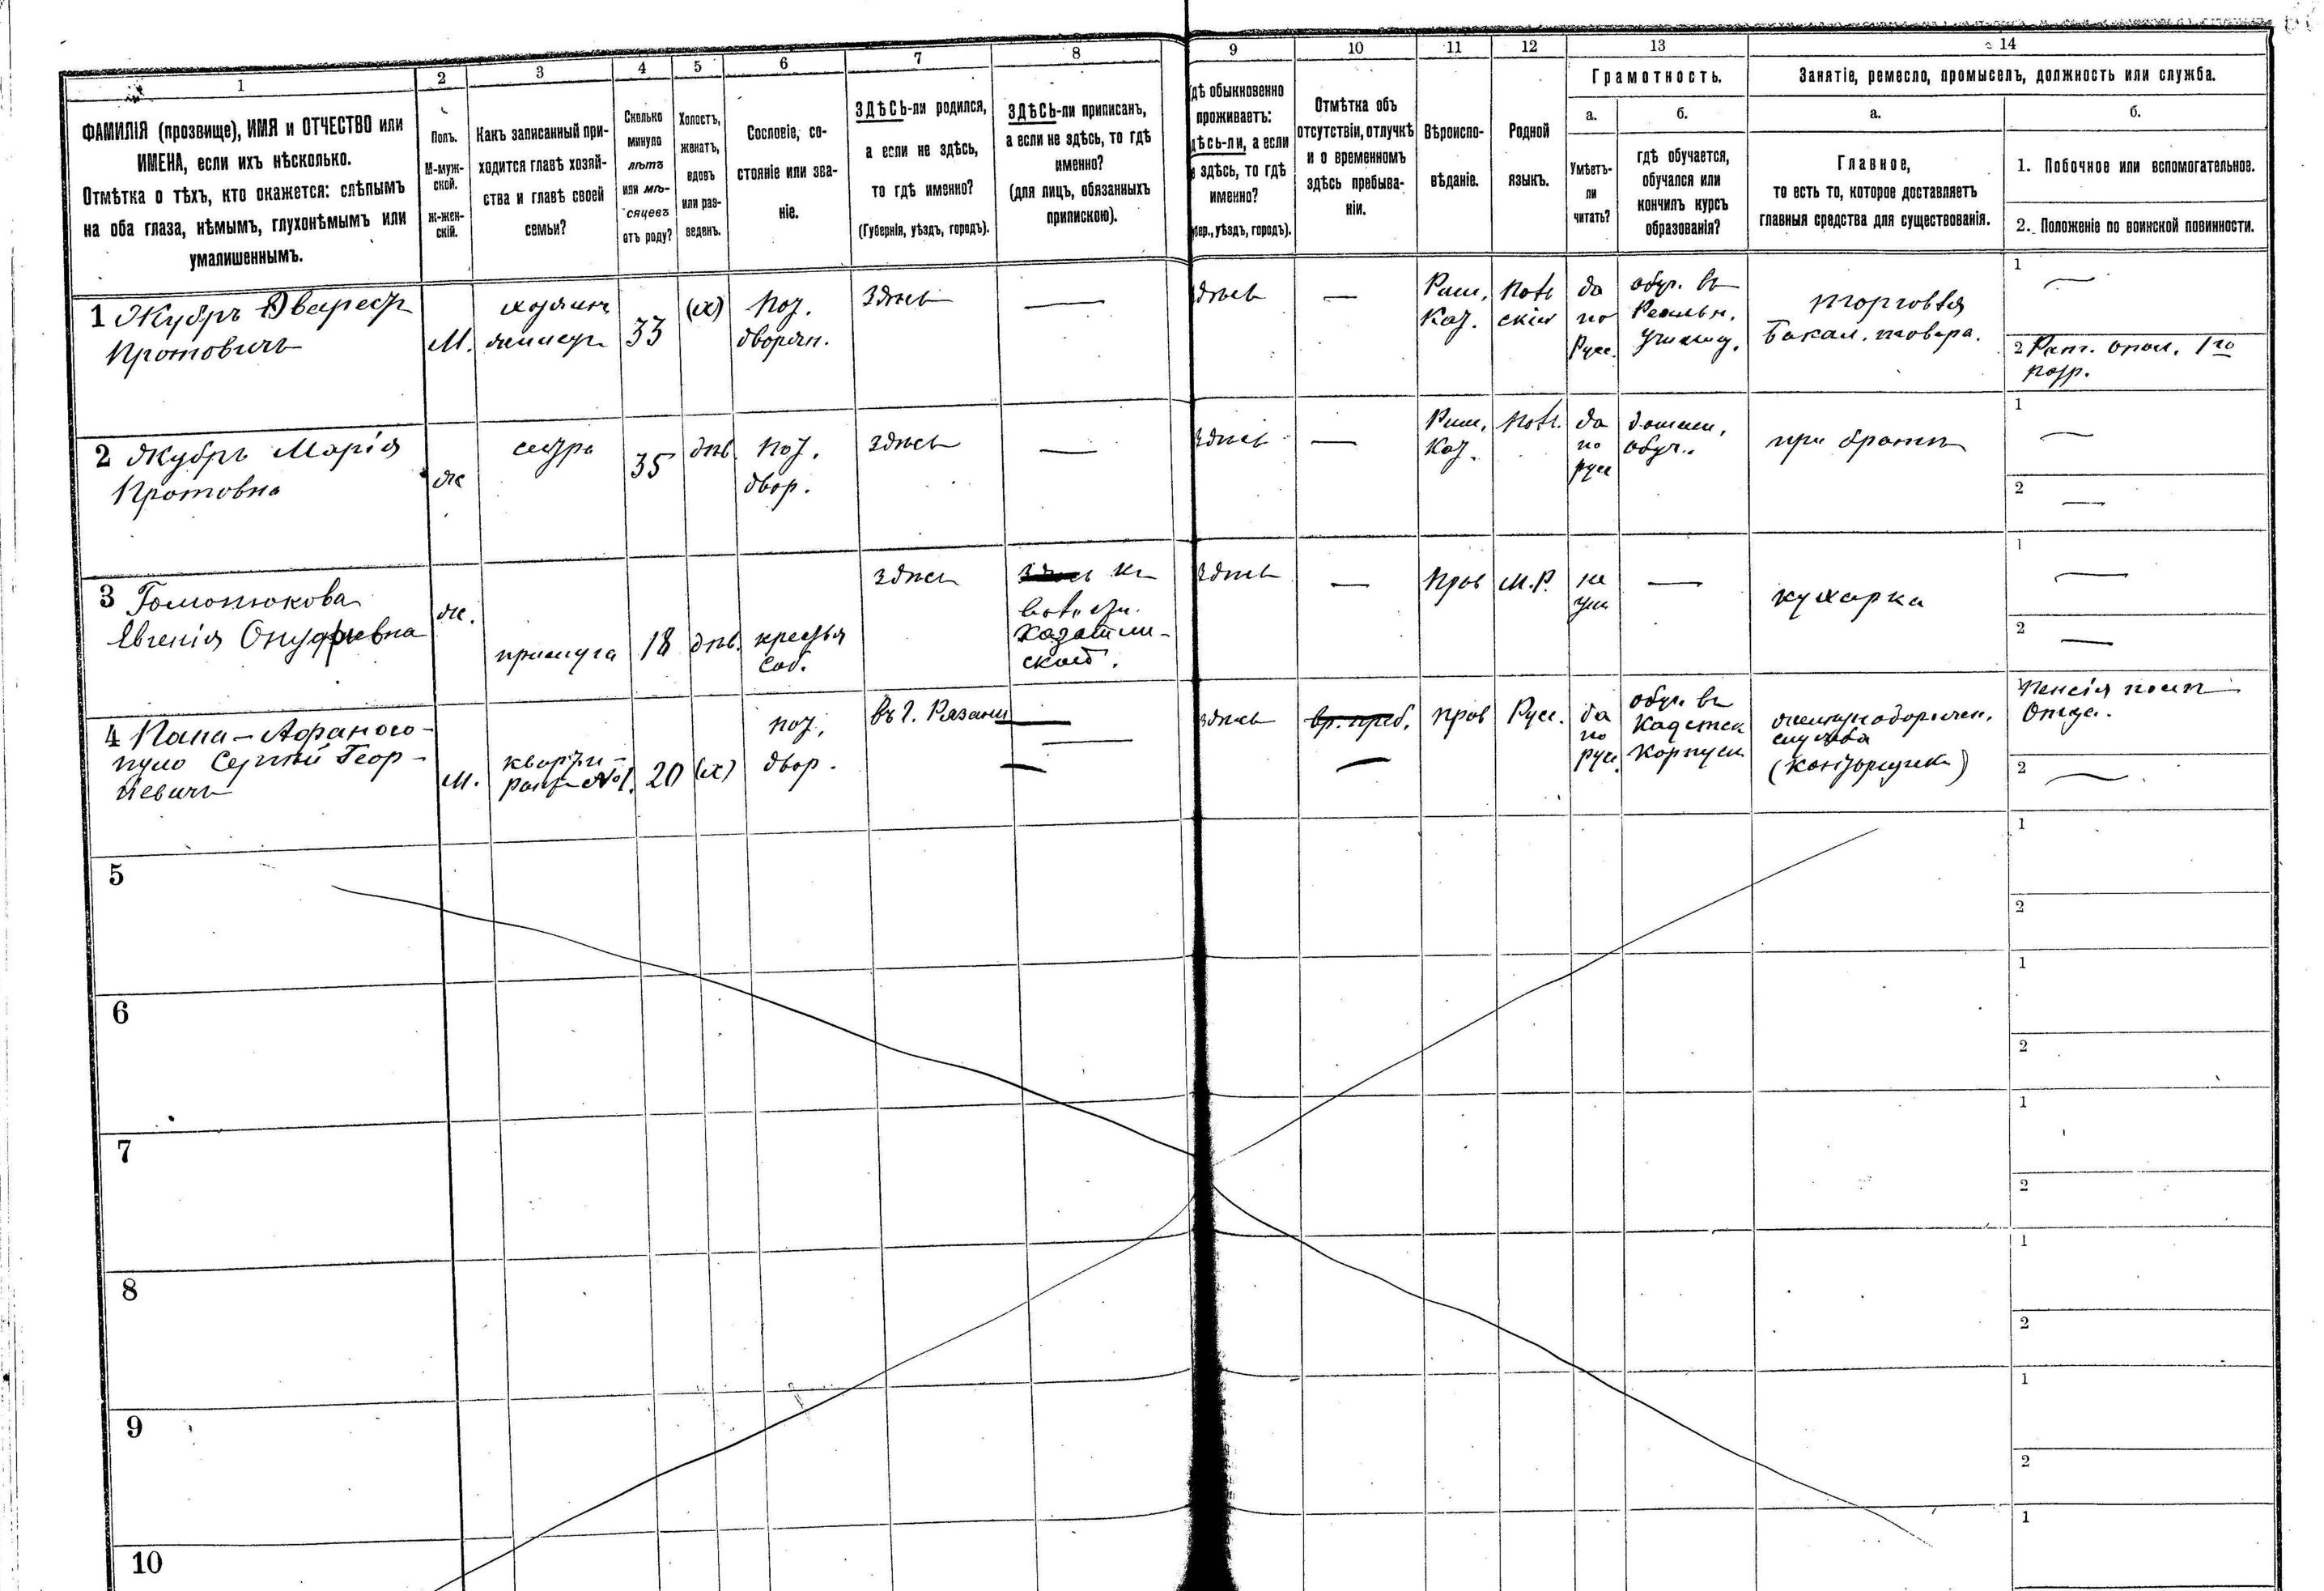 1 2 3 4 5 6 7 8 9 10 11 12 13 14
ФАМИЛІЯ (прозвище), ИМЯ и ОТЧЕСТВО или
ИМЕНА, если ихъ нѣсколько.
Отмѣтка о тѣхъ, кто окажется: слѣпымъ
на оба глаза, нѣмымъ, глухонѣмымъ или
умалишеннымъ.
Полъ.
М-муж-
ской.
ж-жен-
скій.
Какъ записанный при-
ходится главѣ хозяй-
ства и главѣ своей
семьи?
Сколько
минуло
лѣтъ
или мѣ-
сяцевъ
отъ роду?
Холостъ,
женатъ,
вдовъ
или раз-
веденъ.
Сословіе, со-
стояніе или зва-
ніе.
ЗДѢСЬ-ли родился,
а если не здѣсь,
то гдѣ именно?
(Губернія, уѣздъ, городъ).
ЗДѢСЬ-ли приписанъ,
а если не здѣсь, то гдѣ
именно?
(для лицъ, обязанныхъ
припискою).
дѣ обыкновенно
проживаетъ:
дѣсь-ли, а если
здѣсь, то гдѣ
именно?
бер., уѣздъ, городъ).
Отмѣтка объ
отсутствіи, отлучкѣ
и о временномъ
здѣсь пребыва-
ніи.
Вѣроиспо-
вѣданіе.
Родной
языкъ.
Грамотность.
а.
Умѣетъ-
ли
читать?
б.
гдѣ обучается,
обучался или
кончилъ курсъ
образованія?
Занятіе, ремесло, промыселъ, должность или служба.
а.
Главное,
то есть то, которое доставляетъ
главныя средства для существованія.
б.
1. Побочное или вспомогательное.
2. Положеніе по воинской повинности.
1 Жубръ
Протовичъ
М.
хозяинъ
33
(х)
пот.
дворян.
Здѣсь
—
здѣсь
—
Рим.
Кат.
Поль
скій
да
по
Русс.
обуч. въ
Реальн.
Училищ.
торговля
Бакал. товара.
1 —
2 Рат. опол. 1го
разр.
2 Жубръ Марія
Протовна
ж
сестра
35
дѣв.
пот.
двор.
здѣсь
—
здѣсь
—
Рим.
Кат.
Поль.
да
по
русс
домаш.
обуч.
при братѣ
1 —
2 —
3 Гомонюкова
Евгенія Онуфріевна
ж.
прислуга
18
дѣв.
крестья
соб.
здѣсь
здѣсь къ
волости.
Казатин-
ской.
здѣсь
—
прав
М.Р.
не
ум
—
кухарка
1 —
2 —
4 Папа-Афаносо-
пуло Сергѣй Геор-
гіевичъ
М.
кварти-
рантъ №1.
20
(х)
пот.
двор.
въ г. Рязани
—
здѣсь
вр. преб.
—
прав
Русс.
да
по
русс.
обуч. въ
Кадетск
Корпусѣ
служба
(конторщикъ)
1 Пенсія послѣ
Отца.
2 —
5
1
2
6
1
2
7
1
2
8
1
2
9
1
2
10
1